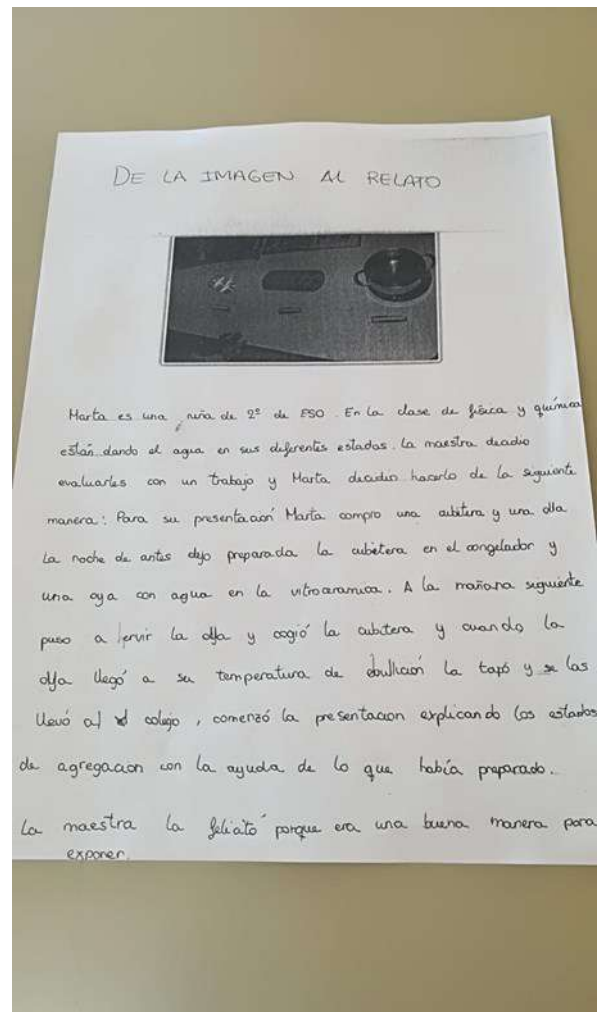 DE LA IMAGEN AL RELATO
Marta es una niña de 2º de ESO. En la clase de física y química
están dando el agua en sus diferentes estados. La maestra decidio
evaluarles con un trabajo y Marta decidio hacerlo de la siguiente
manera: Para su presentación Marta compro una cubitera y una olla
La noche de antes dejo preparada la cubetera en el congelador y
una oya con agua en la vitroceramica. A la mañana siguiente
puso a hervir la olla y cogió la cubitera y cuando la
olla llegó a su temperatura de ebullición la tapó y se las
llevó al colegio, comenzó la presentacion explicando los estados
de agregación con la ayuda de lo que había preparado.
La maestra la felicitó porque era una buena manera para
exponer.